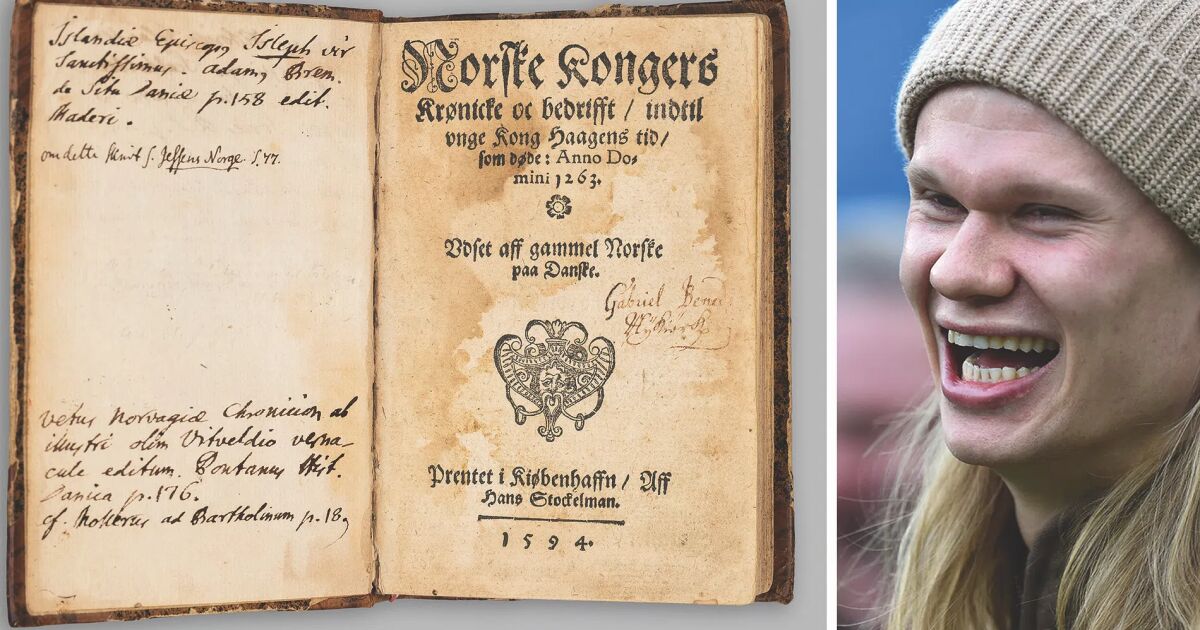 Islandiæ Episcop, Isleph vir
Sanctissimus. adam, Brem.
de Situ Daniæ p.158 edit.
Maderi.
om dette Skrift s. Jessens Norge. S. 77.
vetus Norvagiæ Chronicion ab
illustri olim Vitveldio verna-
cule editum. Pontanus Hist.
Danica p.176.
cf. Mollerus ad Bartholinum p.18,
Norske Kongers
Krønicke oc bedrifft / indtil
vnge Kong Haagens tid/
som døde: Anno Do-
mini 1263.
Vdset aff gammel Norske
paa Danske.
Gabriel
Prentet i Kiøbenhaffn / Aff
Hans Stockelman.
1594.